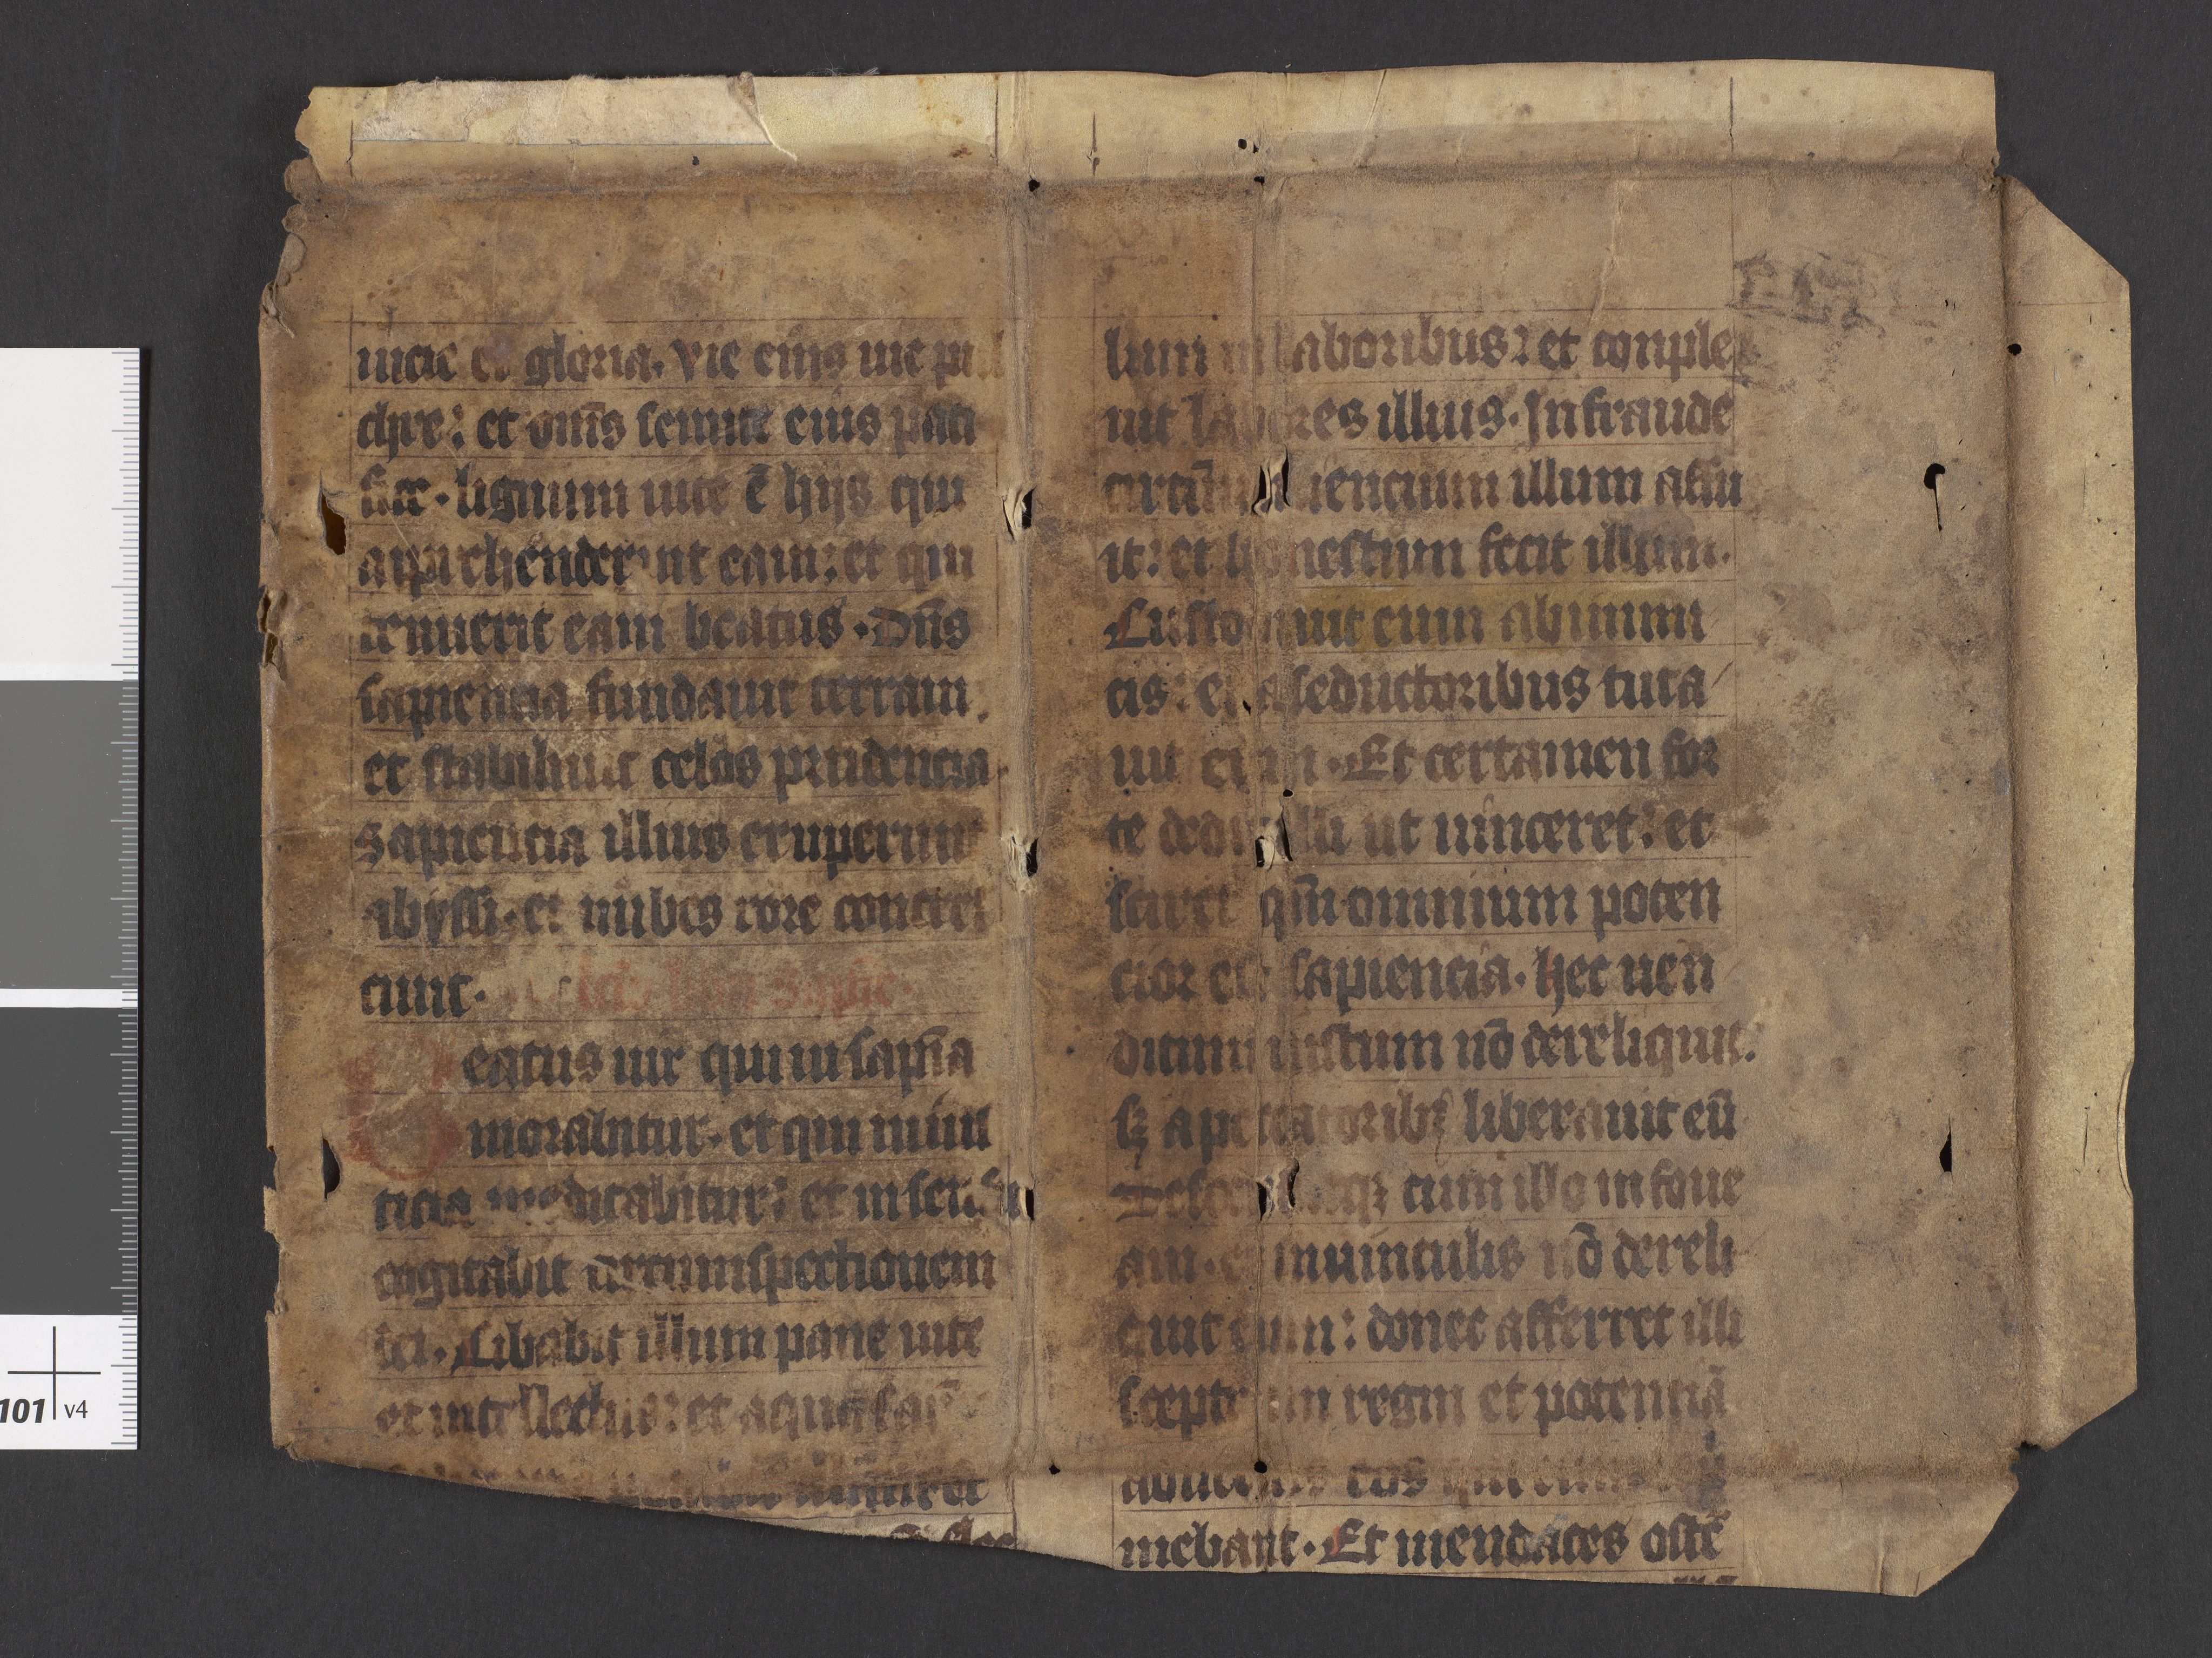 uicie et gloria. vie eius uie pul
chre: et om̄s semite eius paci
fice. lignum uite ē hijs qui
apprehenderint eam: et qui
tenuerit eam beatus. Dn̄s
sapiencia fundauit terram:
et stabiliuit celos prudencia
Sapiencia illius eruperunt
abyssi. et nubes rore concres
cunt. lcō. libri Sapīe.
Beatus uir qui in sapīa
morabitur. et qui in iūst
ticia meditabitur: et in sensu
cogitabit circumspectionem
dei. Cibabit illum pane uite
et intellectus: et aqua sap
nebant. Et mendaces ostē
lum in laboribus: et conple
uit labores illius. In fraude
circūueniencium illum affu
it: et honestum fecit illum.
Custodiuit eum ab inimi
cis: et a seductoribus tuta
uit eum. Et certamen for
te dedit illi ut uinceret: et
sciret qm̄ omnium poten
cior est sapiencia. hec uen
ditum iustum nō dereliquit.
sꝫ a peccatoribꝫ liberauit eū
Descenditqꝫ cum illo in foue
am. et in uinculis nō dereli
quit eum: donec afferret illi
sceptrum regni et potenciā
aduersus eos qui eum
mebant. Et mendaces ostē